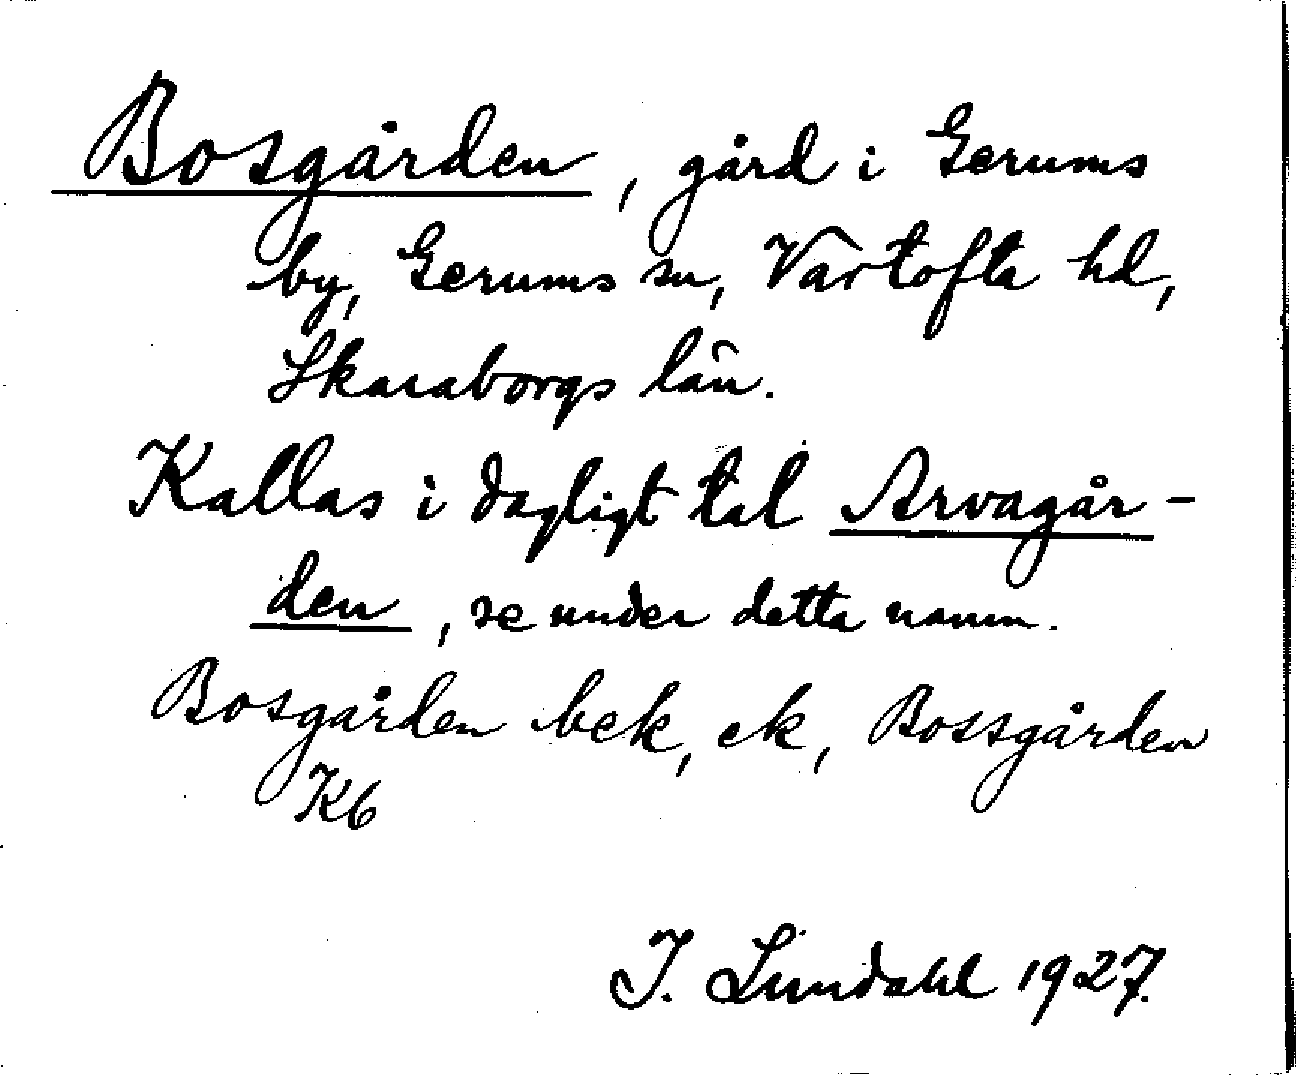 Bosgården, gård i Gerums
by, Gerums sn, Vartofta hd,
Skaraborgs län.
Kallas i dagligt tal Arvagår-
den, se under detta namn.
Bosgården bek, ek, Bossgården
Kb
I. Lundahl 1927.